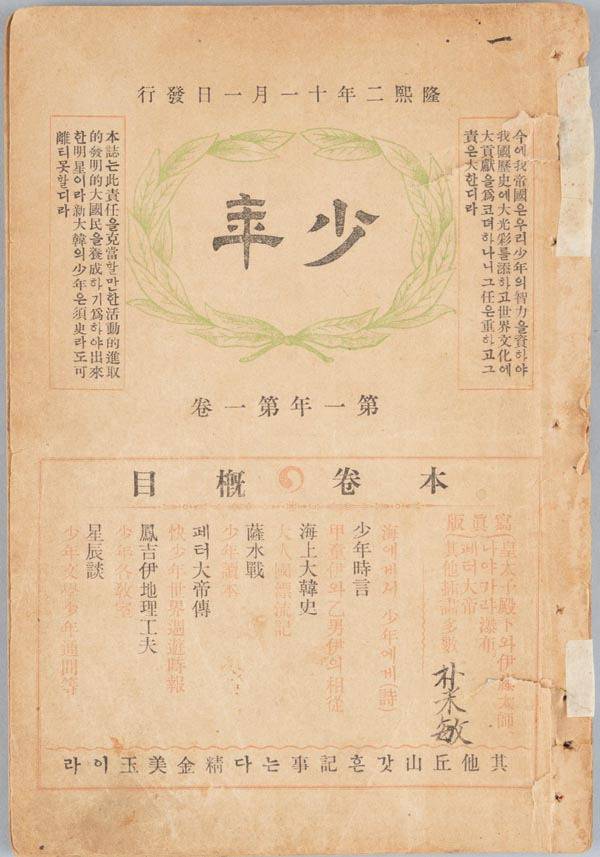 一
隆熙二年十一月一日發行
今에我帝國은우리少年의智力을資하야
我國歷史에大光彩를添하고世界文化에
大貢獻을爲코뎌하나니그任은重하고그
責은大한디라
少年
本誌는此責任을克當할만한活動的進取
的發明的大國民을養成하기爲하야出來
한明星이라新大韓의少年은須臾라도可
離티못할디라
第一年第一卷
本卷概目
寫眞版
皇太子殿下와伊藤太師
나야가라瀑布
페터大帝
其他揷畵多數
海에게서 少年에게(詩)
少年時言
甲童伊와乙男伊의相從
海上大韓史
大人國漂流記
薩水戰
少年讀本
페터大帝傳
快少年世界週遊時報
鳳吉伊地理工夫
少年各敎室
星辰談
少年文學少年通問等
其他丘山갓흔記事는다精金美玉이라